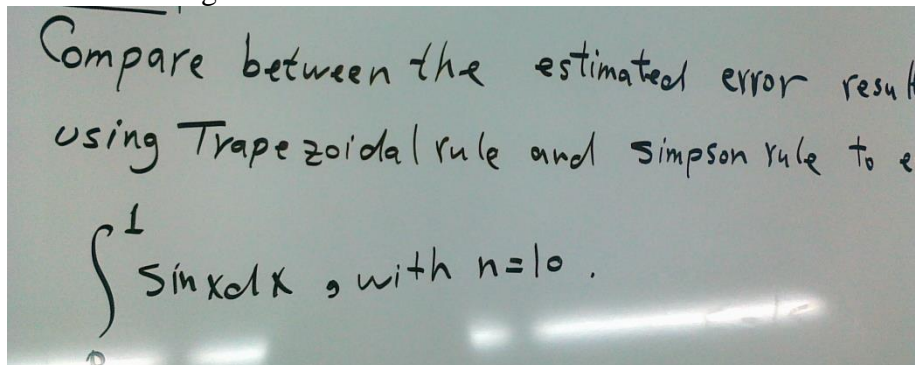 Compare between the estimated error
using Trapezoidal rule and Simpson rule to
∫₀¹ sin x dx , with n=10 .